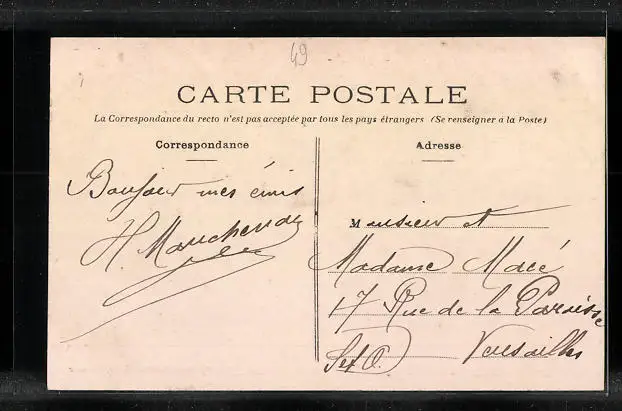 49
CARTE POSTALE
La Correspondance du recto n'est pas acceptée par tous les pays étrangers (Se renseigner à la Poste)
Correspondance
Adresse
Bonjour mes amis
H.
Monsieur et
Madame Macé
17 Rue de la Paroisse
Set O. Versailles